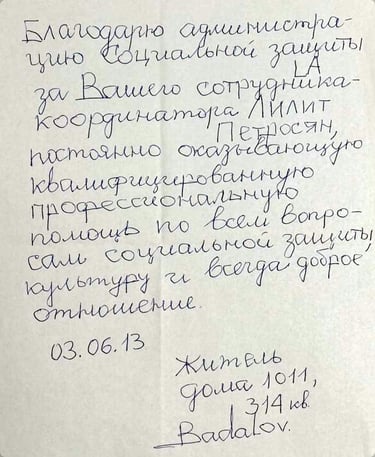 Благодарю администра-
цию социальной защиты
LA
за Вашего сотрудника-
координатора Лилит
Петросян,
постоянно оказывающую
квалифицированную
профессиональную
помощь по всем вопро-
сам социальной защиты,
культуру и всегда доброе,
отношение.
03.06.13
Житель
дома 1011,
314 кв.
Badalov.